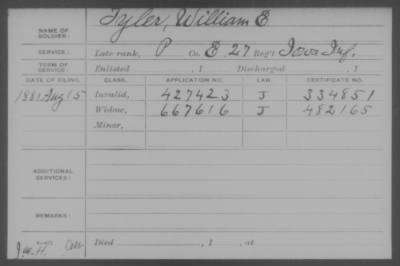 NAME OF SOLDIER: Tyler, William E
SERVICE: Late rank, P Co. E, 27 Reg't Iowa Inf.
TERM OF SERVICE: Enlisted , 1 Discharged , 1
DATE OF FILING. CLASS. APPLICATION NO. LAW. CERTIFICATE NO.
1881 Aug 15 Invalid, 427423 J 334851
Widow, 667616 J 482165
Minor,
ADDITIONAL SERVICES:
REMARKS:
Died , 1 , at